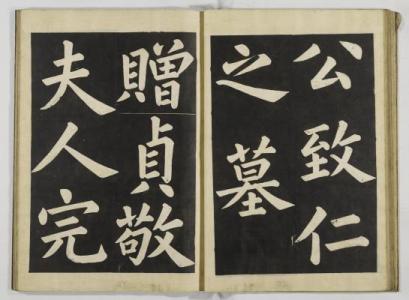 公致仁
之墓
贈貞敬
夫人完